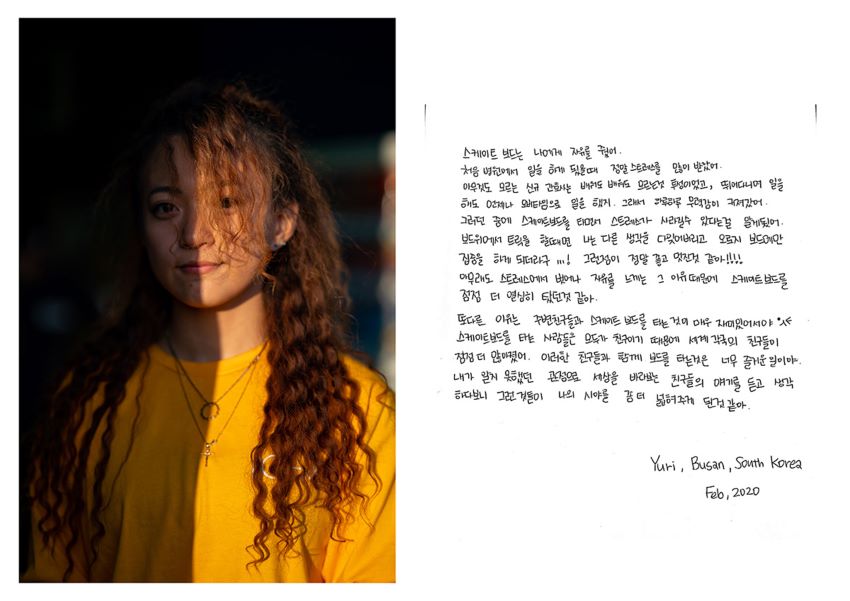 스케이트 보드는 나에게 자유를 줬어.
처음 병원에서 일을 하게 됐을때 정말 스트레스를 많이 받았어.
아무것도 모르는 신규 간호사는 배워도 배워도 모르는것 투성이었고, 뛰어다니며 일을
해도 언제나 오버타임으로 일을 했지. 그래서 하루하루 무력감이 커져갔어.
그러던 중에 스케이트보드를 타면서 스트레스가 사라질수 있다는걸 알게됬어.
보드위에서 트릭을 할때면 나는 다른 생각을 다 잊어버리고 오로지 보드에만
집중을 하게 되더라구 !!! 그런점이 정말 쿨고 멋진것 같아!!!!
아무래도 스트레스에서 벗어나 자유를 느끼는 그 이유때문에 스케이트보드를
점점 더 열심히 탔던것 같아.
또다른 이유는 주변친구들과 스케이트 보드를 타는것이 매우 재미있어서야
스케이트보드를 타는 사람들은 모두가 친구이기 때문에 세계각국의 친구들이
점점 더 많아졌어. 이러한 친구들과 함께 보드를 타는것은 너무 즐거운 일이야.
내가 알지 못했던 관점으로 세상을 바라보는 친구들의 얘기를 듣고 생각
하다보니 그런것들이 나의 시야를 좀 더 넓혀주게 된것 같아.
Yuri, Busan, South Korea
Feb, 2020